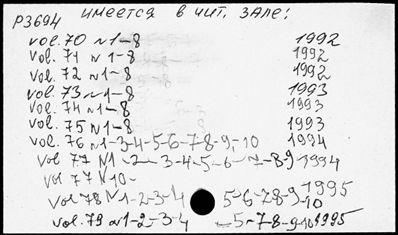 P3694 имеется в чит. зале:
vol. 70 N1-8 1992
vol. 71 N1-8 1992
vol. 72 N1-8 1992
vol. 73 N1-8 1993
vol. 74 N1-8 1993
vol. 75 N1-8 1993
vol. 76 N1-3-4-5-6-7-8-9-10 1994
vol 77 N1-2-3-4-5-6-7-8-9 1994
vol 77 N10-
vol 78 N1-2-3-4 5-6-7-8-9-10 1995
vol. 79 N1-2-3-4 -5-7-8-9-10 1995